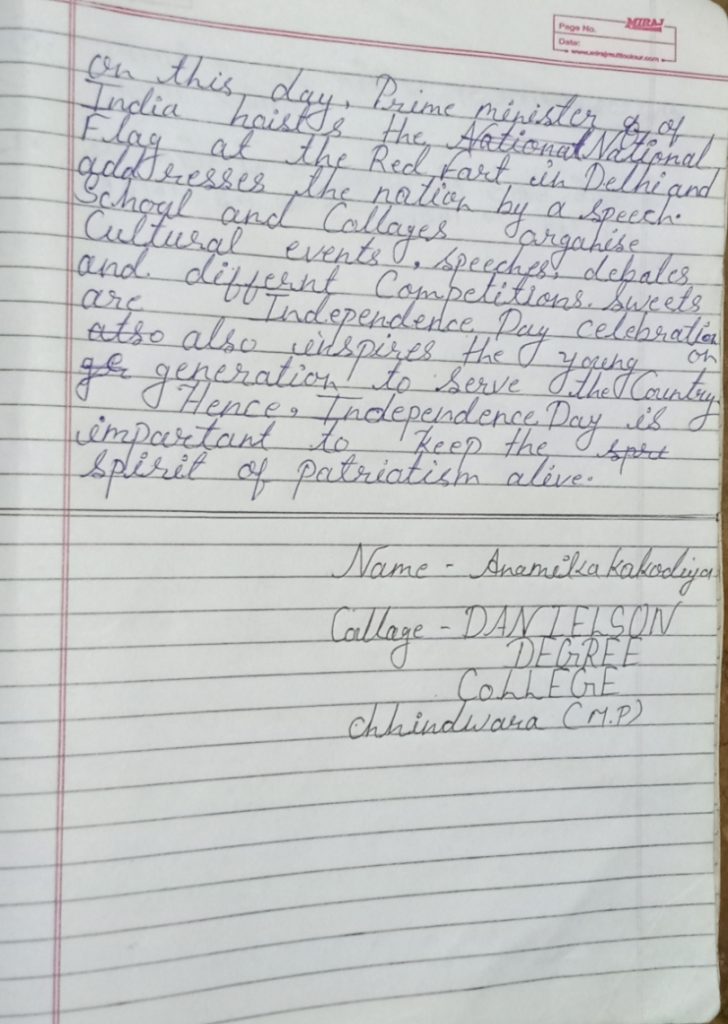 MIRAJ
Page No.
Date:
www.mirajmulticolour.com
on this day, Prime minister of
India hoists the National National
Flag at the Red Fart in Delhi and
addresses the nation by a speech.
School and Collages arganise
Cultural events, speeches, debales
and differnt Competitions. sweets
are Independence Day celebration
also also inspires the young on
ge generation to serve the Country
Hence, Independence Day is
impartant to keep the sprt
spirit of patriatism alive.
Name - Anamika kakodiya
Callage - DANIELSON
DEGREE
CoLLEGE
Chhindwara (M.P)